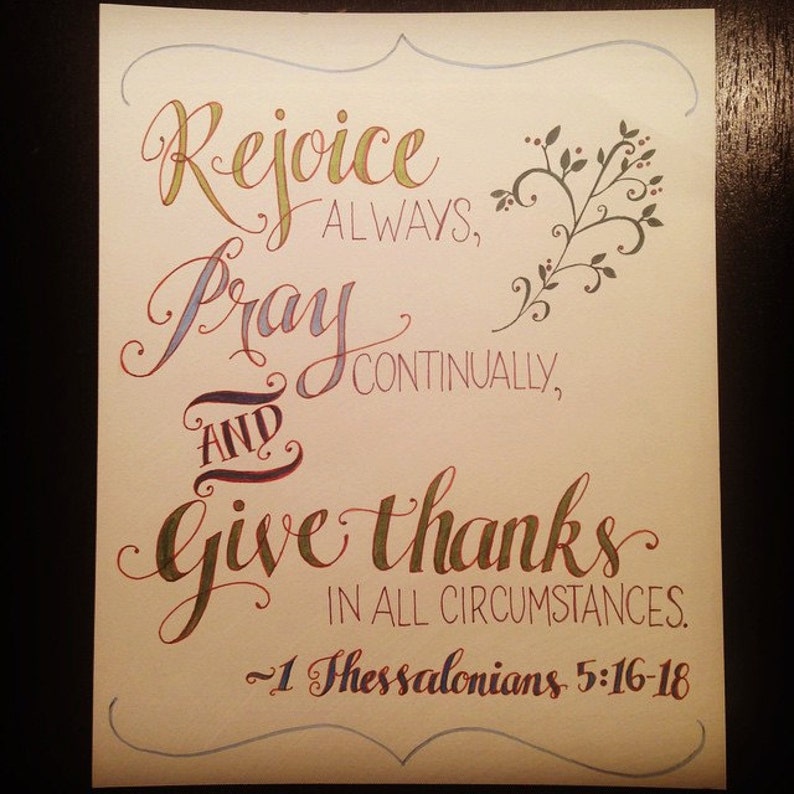 Rejoice
ALWAYS,
Pray
CONTINUALLY,
AND
Give thanks
IN ALL CIRCUMSTANCES.
~1 Thessalonians 5:16-18